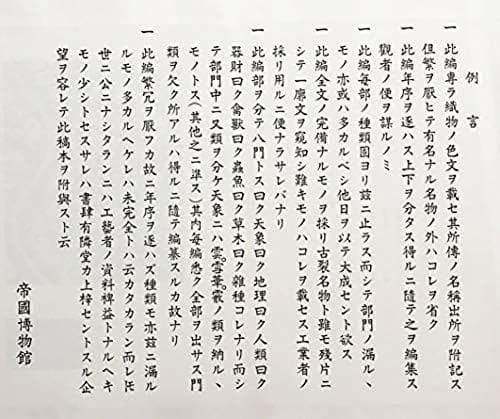 例言
一 此編專ラ織物ノ色文ヲ載セ其所傳ノ名稱出所ヲ附記ス
但繁ヲ厭ヒテ有名ナル名物ノ外ハコレヲ省ク
一 此編年序ヲ逐ハス上下ヲ分タス得ルニ隨テ之ヲ編集ス
觀者ノ便ヲ謀ルノミ
一 此編每部ノ種類固ヨリ玆ニ止ラス而シテ部門ノ漏ル丶
モノ亦或ハ多カルベシ他日ヲ以テ大成セント欲ス
一 此編全文ノ完備ナルモノヲ採リ古裂名物ト雖モ殘片ニ
シテ一廓文ヲ窺知シ難キモノハコレヲ載セス工業者ノ
採リ用ルニ便ナラサレバナリ
一 此編部ヲ分テ八門トス曰ク天象曰ク地理曰ク人類曰ク
器財曰ク禽獸曰ク蟲魚曰ク草木曰ク雜種コレナリ而シ
テ部門中ニ又類ヲ分ケ天象ニハ雲雪霞ノ類ヲ納ル丶
モノトス(其他之ニ準ス)其內每編悉ク全部ヲ出サス門
類ヲ欠ク所アルハ得ルニ隨テ編纂スルカ故ナリ
一 此編繁冗ヲ厭フカ故ニ年序ヲ逐ハズ種類モ亦玆ニ漏ル
ルモノ多カルヘケレハ未完全トハ云カタカラン而レ𪜈
世ニ公ニナシタランニハ工藝者ノ資料裨益トナルヘキ
モノ少シトセスサレハ書肆有隣堂カ上梓セントスル企
望ヲ容レテ此稿本ヲ附與スト云
帝國博物館